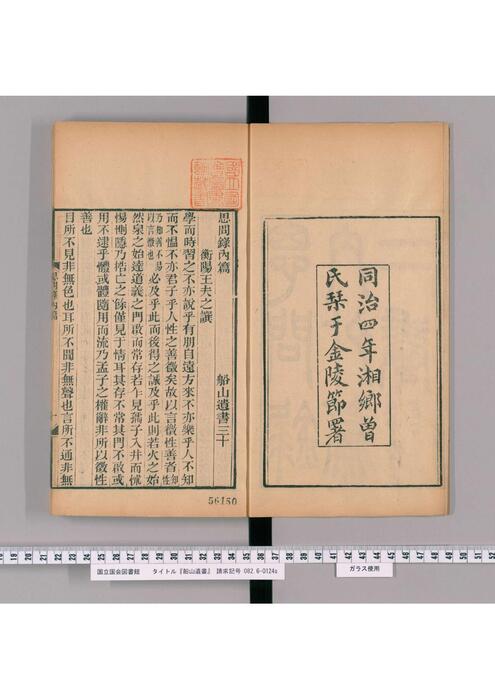 同治四年湘鄉曾
氏栞于金陵節署
思問錄內篇 船山遺書三十
衡陽王夫之譔
學而時習之不亦說乎有朋自遠方來不亦樂乎人不知
而不慍不亦君子乎人性之善徵矣故以言徵性善者知性
乃知善不易以言徵也必及乎此而後得之誠及乎此則若火之始
然泉之始達道義之門啟而常存若乍見孺子入井而怵
惕惻隱乃梏亡之餘僅見于情耳其存不常其門不啟或
用不逮乎體或體隨用而流乃孟子之權辭非所以徵性
善也
目所不見非無色也耳所不聞非無聲也言所不通非無
56150
国立国会図書館 タイトル『船山遺書』 請求記号 082.6-0124s
ガラス使用